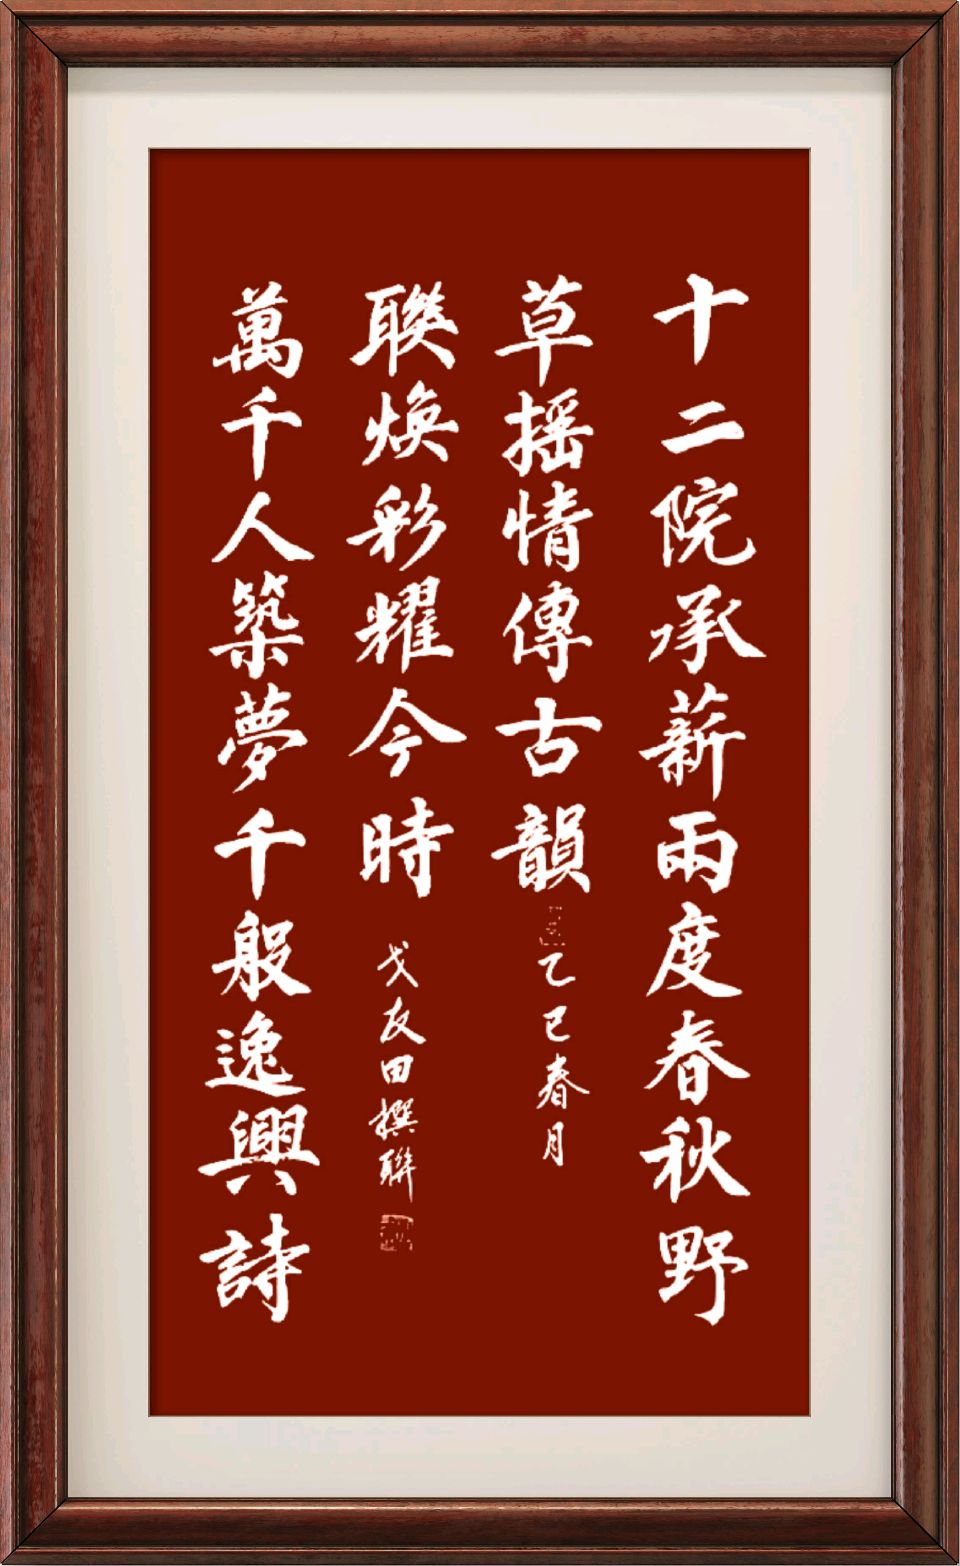 十二院承薪兩度春秋野
草摇情傳古韻
乙巳春月
萬千人築夢千般逸興詩
聯焕彩耀今時
戈友田撰聯